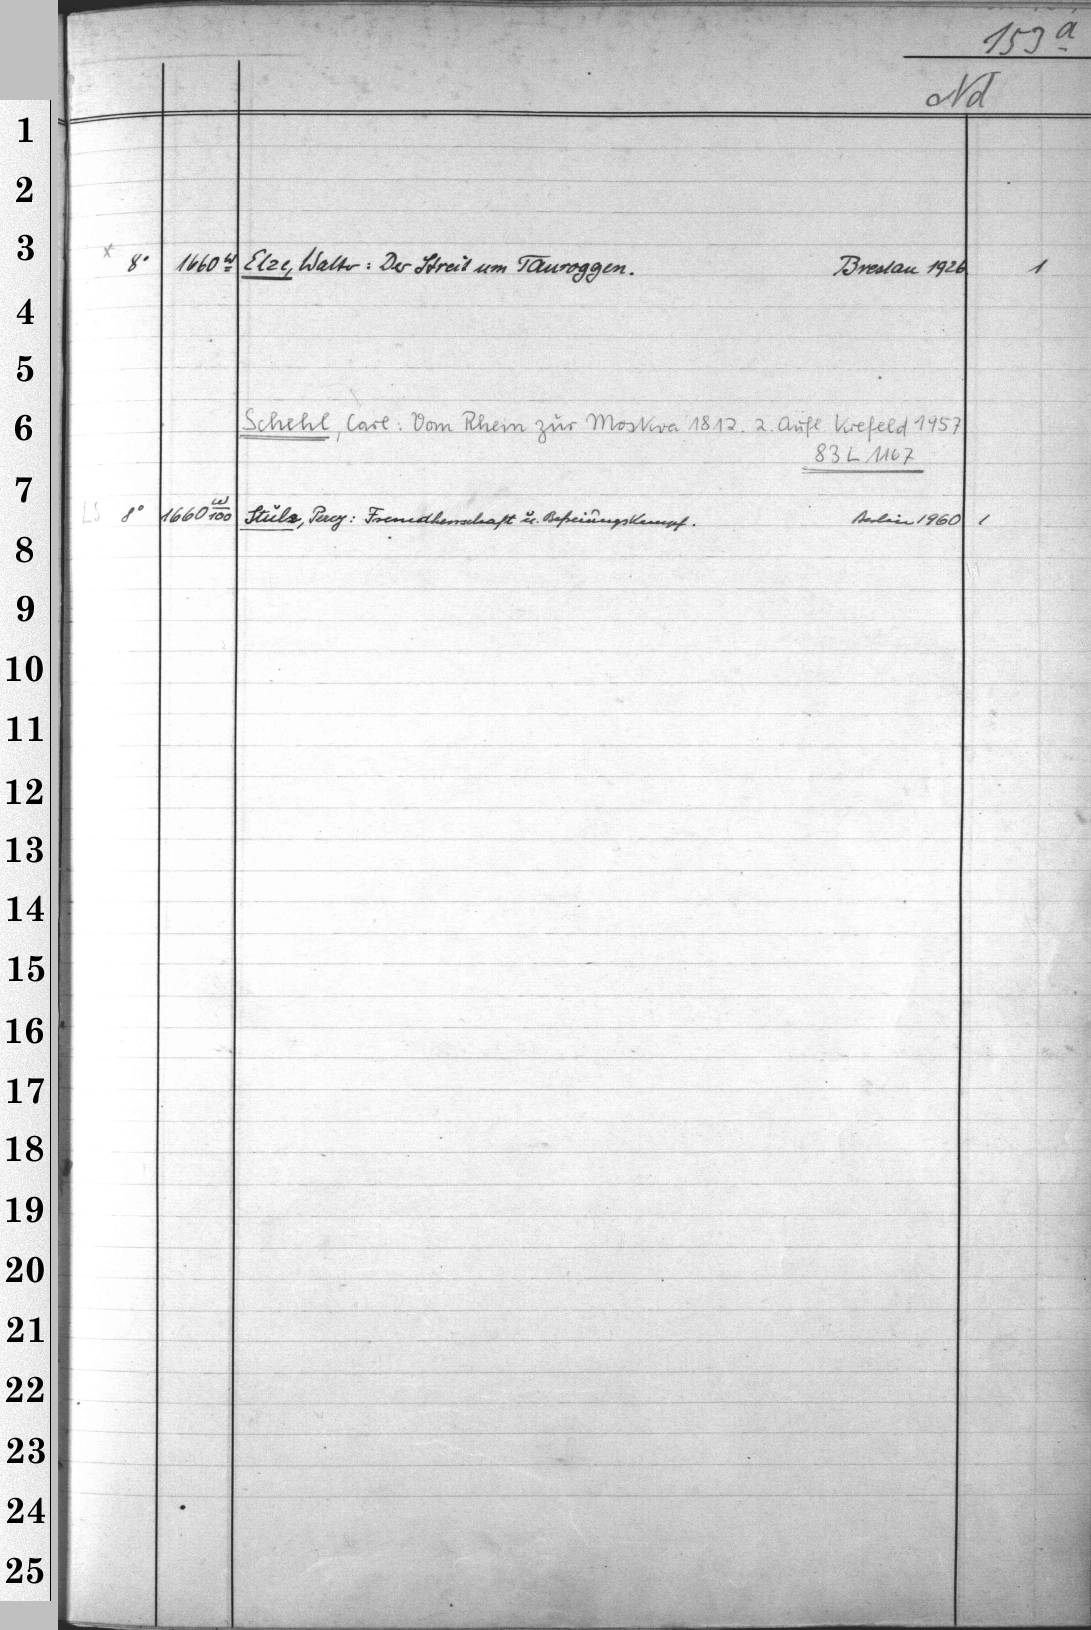 153 a
Nd
1
2
3
x 8° 1660 w Elze, Walter: Der Streit um Tauroggen. Breslau 1926 1
4
5
6
Schehl, Carl: Vom Rhein zur Moskva 1812. 2. Aufl. Krefeld 1957
83 L 1167
7
LS 8° 1660 w/100 Stulz, Percy: Fremdherrschaft u. Befreiungskampf. Berlin 1960 1
8
9
10
11
12
13
14
15
16
17
18
19
20
21
22
23
24
25